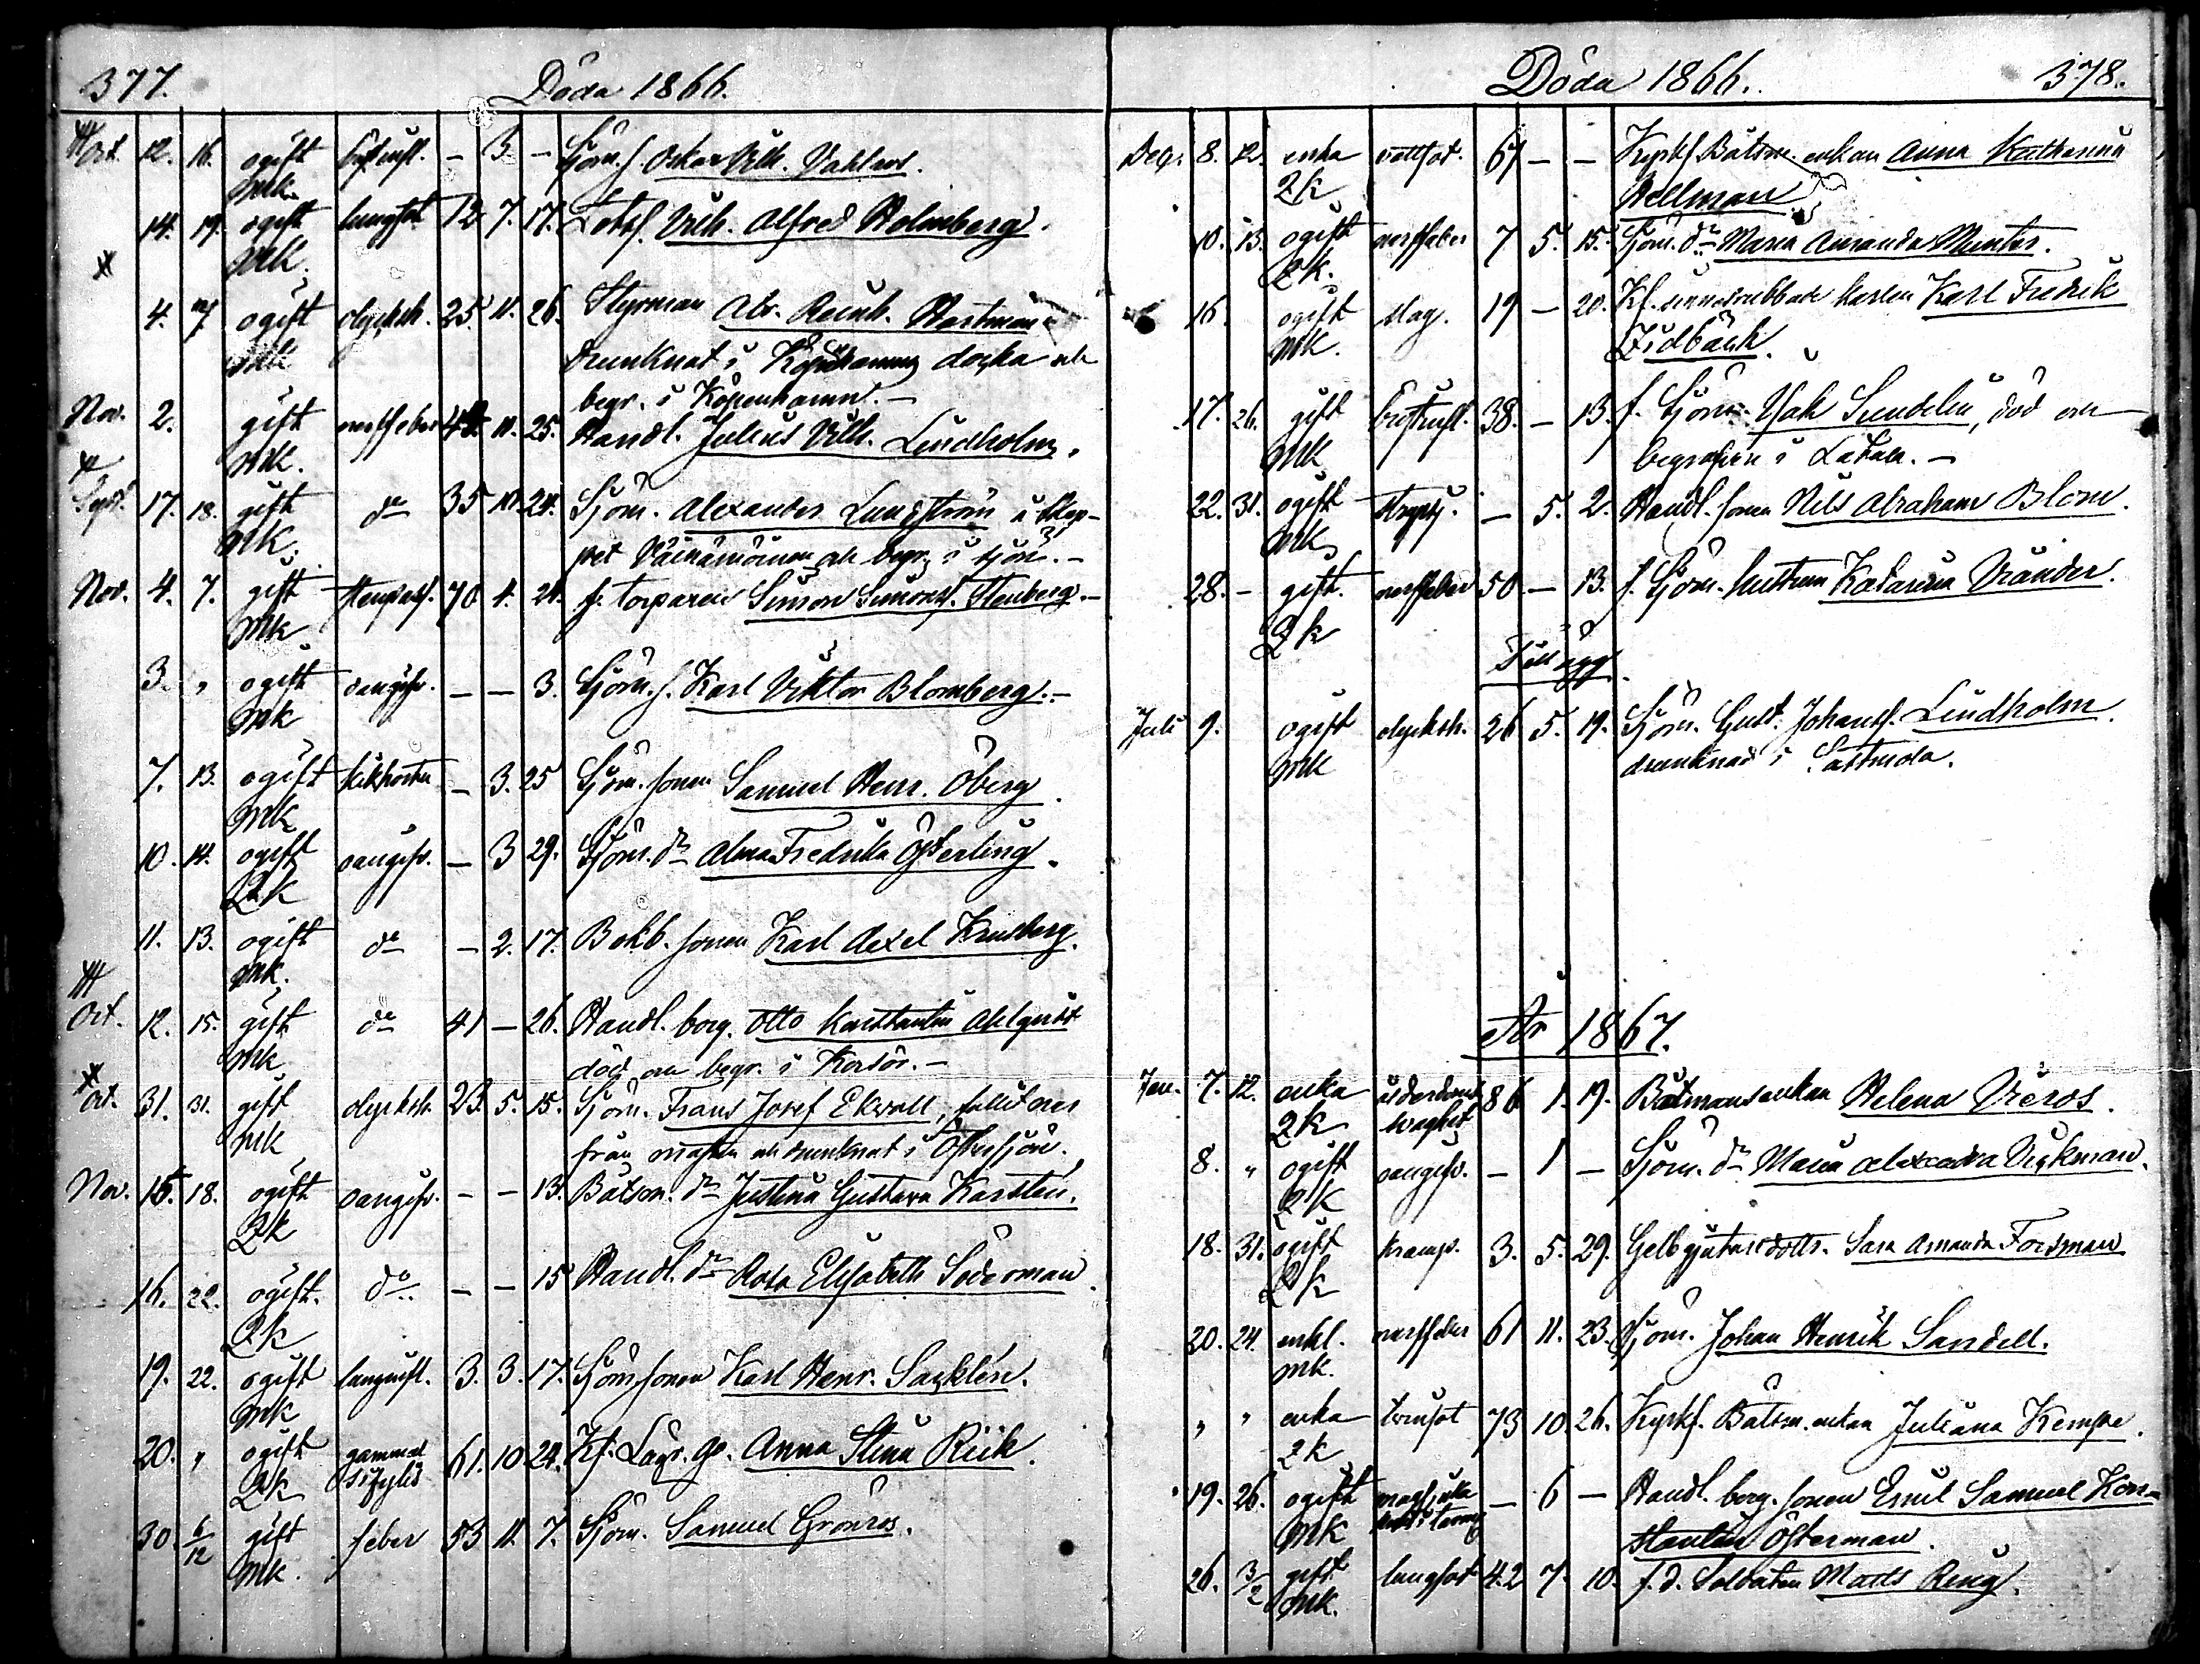 377. Döda 1866.
Oct. 12. 16. ogift bröstinfl. - 3. - Sjöm. s. Oskar Vilh.
mk.
14. 19. ogift lungsot 12. 7. 17. Lotss. Vilh. Alfred Holmberg.
mk.
4. 7 ogift olycksh. 25. 11. 26. Styrman Abr. Reinh. Hartman
mk drunknat i docka och
begr. i Köpenhamn. -
Nov. 2. gift nervfeber 11. 25. Handl. Julius Vilh. Lindholm.
mk.
Sept. 17. 18. gift do 35 24. Sjöm. Alexander Lundström å skep-
mk. pet Väinämöinen och begr. i sjön. -
Nov. 4. 7. gift stenpass. 70 4. 24. f. torparen Simon Simonss. Stenberg. -
mk
3. " ogift oangifv. - - 3. Sjöm. s. Karl Viktor Blomberg. -
mk
7. 13. ogift kikhosta - 3. 25 Sjöm. sonen Samuel Henr. Öberg.
mk
10. 14. ogift oangifv. - 3 29. Sjöm. dr Alma Fredrika Österling.
Qk
11. 13. ogift do - 2. 17. Bokb. sonen Karl Axel Kruseberg.
mk.
Oct. 12. 15. gift do 41 - 26. Handl. borg. Otto Konstantin Ahlqvist
mk död och begr. i Korsör. -
Oct. 31. 31. gift olycksh. 23. 5. 15. Sjöm. Frans Josef Ekvall, fallit ner
mk från masten och drunknat i Östersjön.
Nov. 15. 18. ogift oangifv. - - 13. Båtsm. dr Justina Gustava Karstén.
Qk
16. 22. ogift. do - - 15 Handl. dr Rosa Elisabeth Söderman.
Qk
19. 22. ogift lunginfl. 3. 3. 17. Sjöm. sonen Karl Henr. Sacklén.
mk
20. " ogift gammal 61. 10 24. Kf. Anna Stina Riik.
Qk sifylis
30. 6/12 gift feber 53 11. 7. Sjöm. Samuel Grönros.
mk.
Döda 1866. 378.
Dec. 8. 12. enka vattsot. 67 - - Kyrkf. Båtsm. enkan Anna Katharina
Qk Hellman
10. 15. ogift nervfeber 7 5. 15. Sjöm. dr Maria Amanda Munter.
Qk.
16. ogift slag. 19 - 20. Kf. sinnesrubbade karlen Karl Fredrik
mk. Zidbäck.
17. 26. gift bröstinfl. 38. - 13. f. Sjöm. Isak Sundelin, död och
mk begrafven i
22. 31. ogift - 5. 2. Handl. sonen Nils Abraham Blom.
mk
28. - gift. nervfeber 50 - 13. f. Sjöm. hustrun Katarina Vrånder.
Qk
Tillägg.
Juli 9. ogift olycksh. 26 5. 19. Sjöm. Gust. Johanss. Lindholm.
mk drunknad i Sastmola.
År 1867.
Jan. 7. 12. enka ålderdoms 86 1. 19. Båtsmansenkan Helena Vreros.
Qk svaghet
8. " ogift oangifv. - 1 - Sjöm. dr Maria Alexandra Vickman.
Qk
18. 31. ogift kramp. 3. 5. 29. Gelbgjutaredottr. Sara Amanda Forsman
Qk
20. 24. enkl. nervfeber 61 11. 23. Sjöm. Johan Henrik Sandell.
mk.
" " enka trånsot 73 10. 26. Kyrkf. Båtsm. enkan Juliana Kempe.
Qk
19. 26. ogift - 6 - Handl. borg. sonen Emil Samuel Kon-
mk stantin Österman.
26. 3/2 gift lungsot 42 7. 10. f. d. Soldaten Matts Ring.
mk.